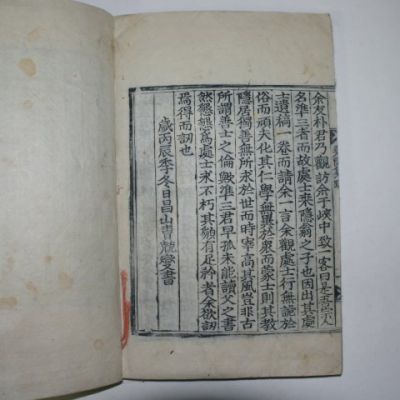 余友朴君乃觀訪余于峽中致一客曰是吾宗人
名準三者而故處士來隱翁之子也因出其處
士遺稿一卷而請余一言余觀處士行無詭於
俗而頑夫化其仁學無異於衆而蒙士則其教
隱居獨善無所求於世而時宰高其風豈非古
所謂善士之倫歟準三君早孤未能讀父之書
然懇懇爲處士求不朽其頗有足矜者余欲訒
焉得而訒也
歲丙辰季冬日昌山曺兢燮書